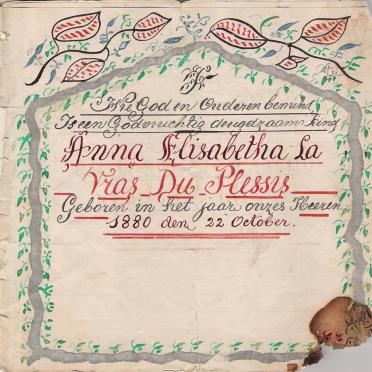 Wie God en Ouderen bemind
Is een Godvruchtig deugdzaam kind
Anna Elisabetha La
Vras Du Plessis
Geboren in het jaar onzes Heeren
1880 den 22 October.